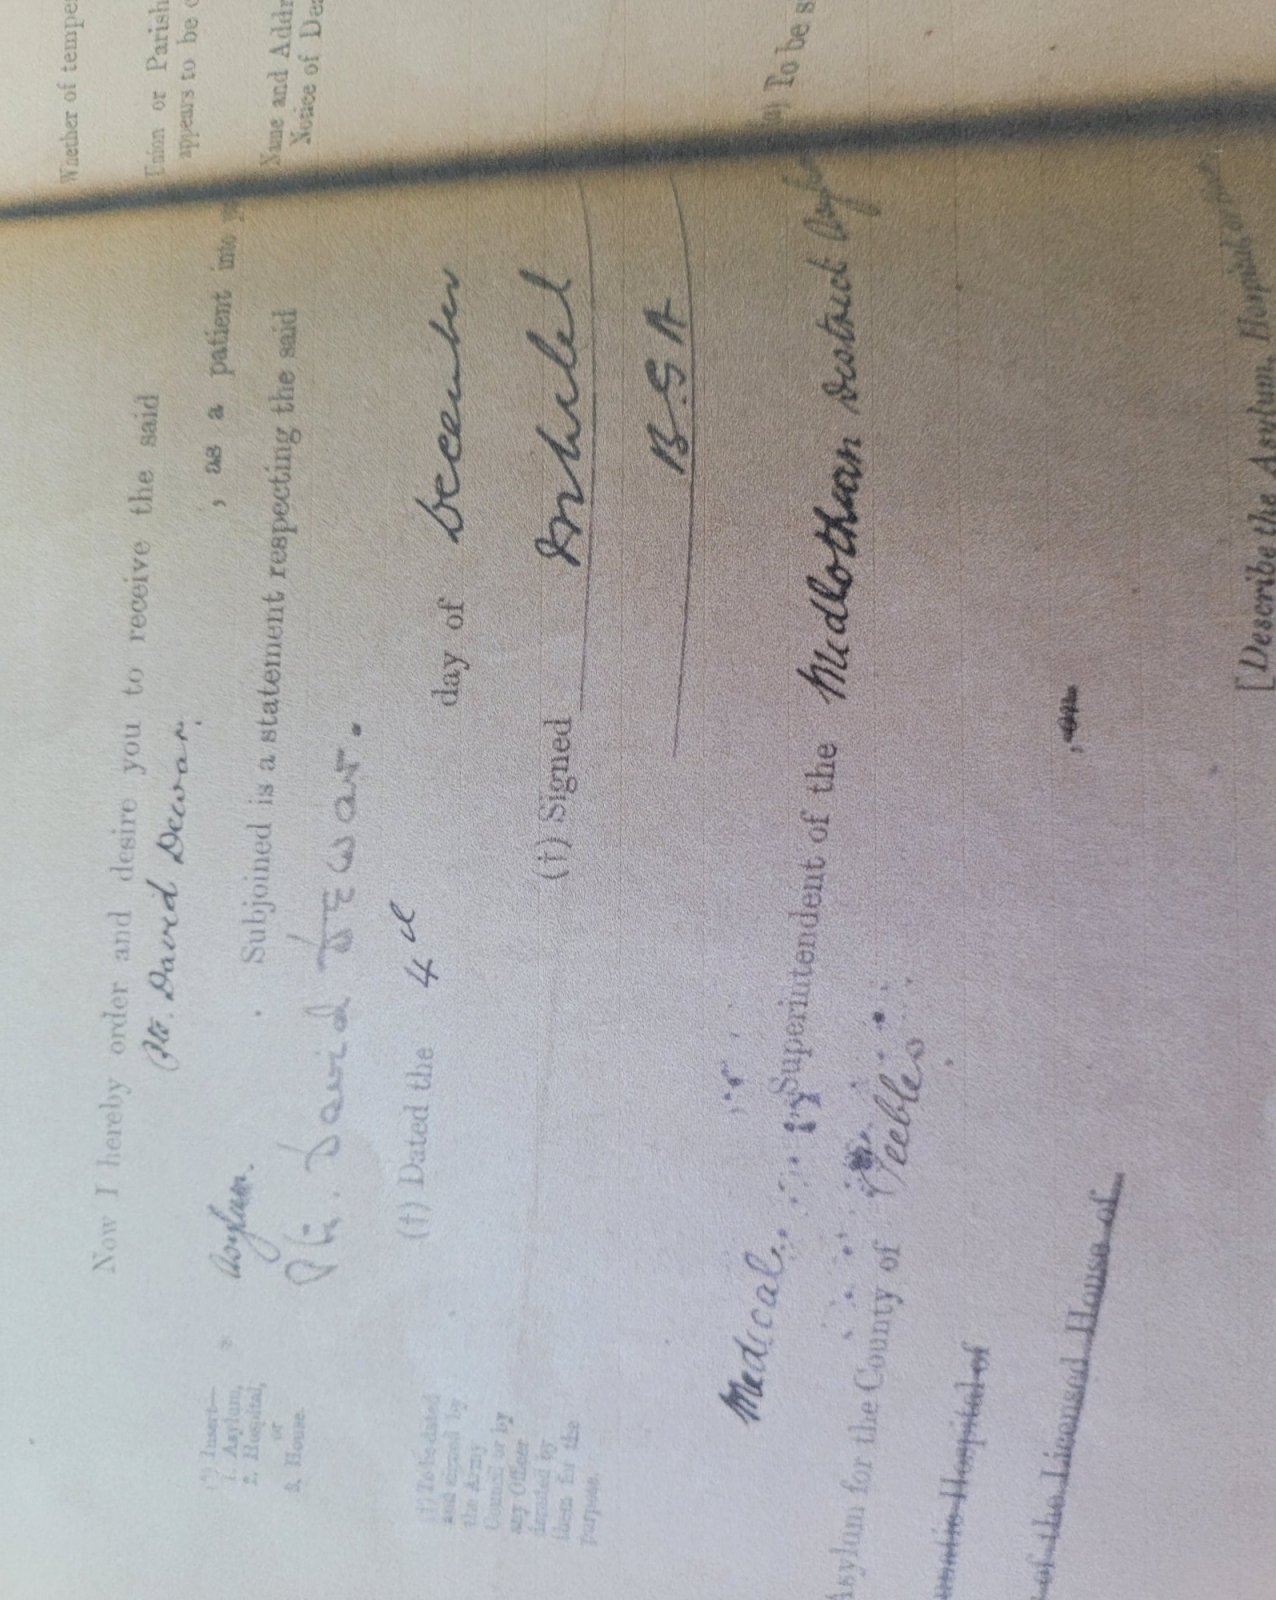 Now I hereby order and desire you to receive the said
Pte. David Dewar.
, as a patient into
Asylum.
Subjoined is a statement respecting the said
Pte. David DEWAR.
(†) Dated the 4th day of December
(†) Signed
B.G.A
Medical Superintendent of the Midlothian District Asylum
Asylum for the County of Peebles
Hospital of
of the Licensed House of
, on
[Describe the Asylum, Hospital or
(*) Insert—
1. Asylum,
2. Hospital,
or
3. House.
(†) To be dated
and signed by
the Army
Council or by
any Officer
deputed by
them for the
purpose.
Whether of
Union or Parish
appears to be
Name and
Notice of
To be